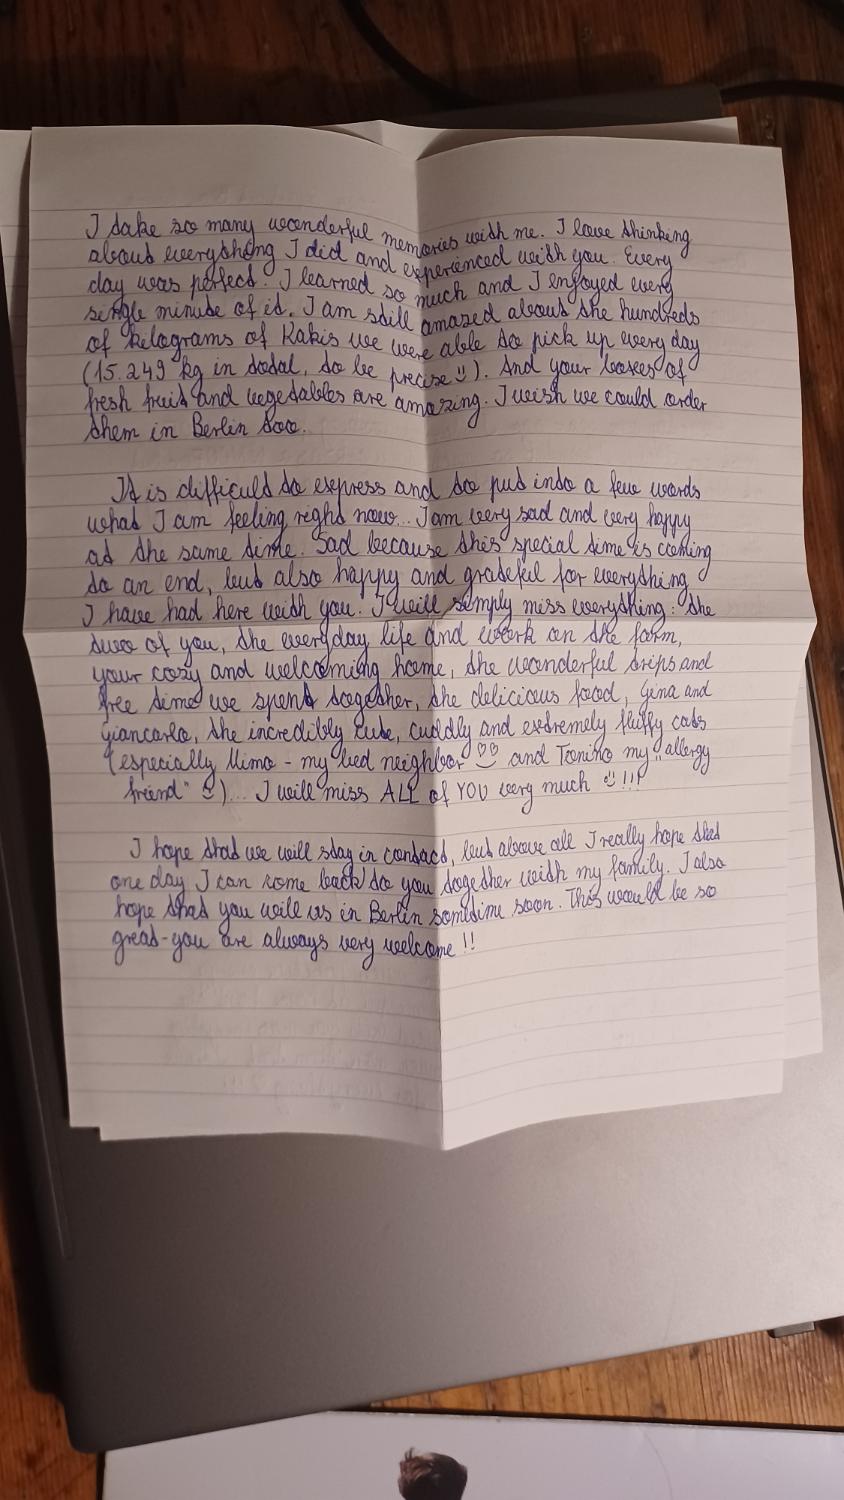 I take so many wonderful memories with me. I love thinking
about everything I did and experienced with you. Every
day was perfect. I learned so much and I enjoyed every
single minute of it. I am still amazed about the hundreds
of kilograms of Kakis we were able to pick up every day
(15.249 kg in total, to be precise ☺). And your boxes of
fresh fruit and vegetables are amazing. I wish we could order
them in Berlin too.
It is difficult to express and to put into a few words
what I am feeling right now... I am very sad and very happy
at the same time. Sad because this special time is coming
to an end, but also happy and grateful for everything
I have had here with you. I will simply miss everything: the
two of you, the everyday life and work on the farm,
your cozy and welcoming home, the wonderful trips and
free time we spent together, the delicious food, Gina and
Giancarlo, the incredibly cute, cuddly and extremely fluffy cats
(especially Mimo - my bed neighbor ♡♡ and Tonino my "allergy
friend" ☺)... I will miss ALL of YOU very much ☺!!!
I hope that we will stay in contact, but above all I really hope that
one day I can come back to you together with my family. I also
hope that you will us in Berlin sometime soon. This would be so
great - you are always very welcome !!